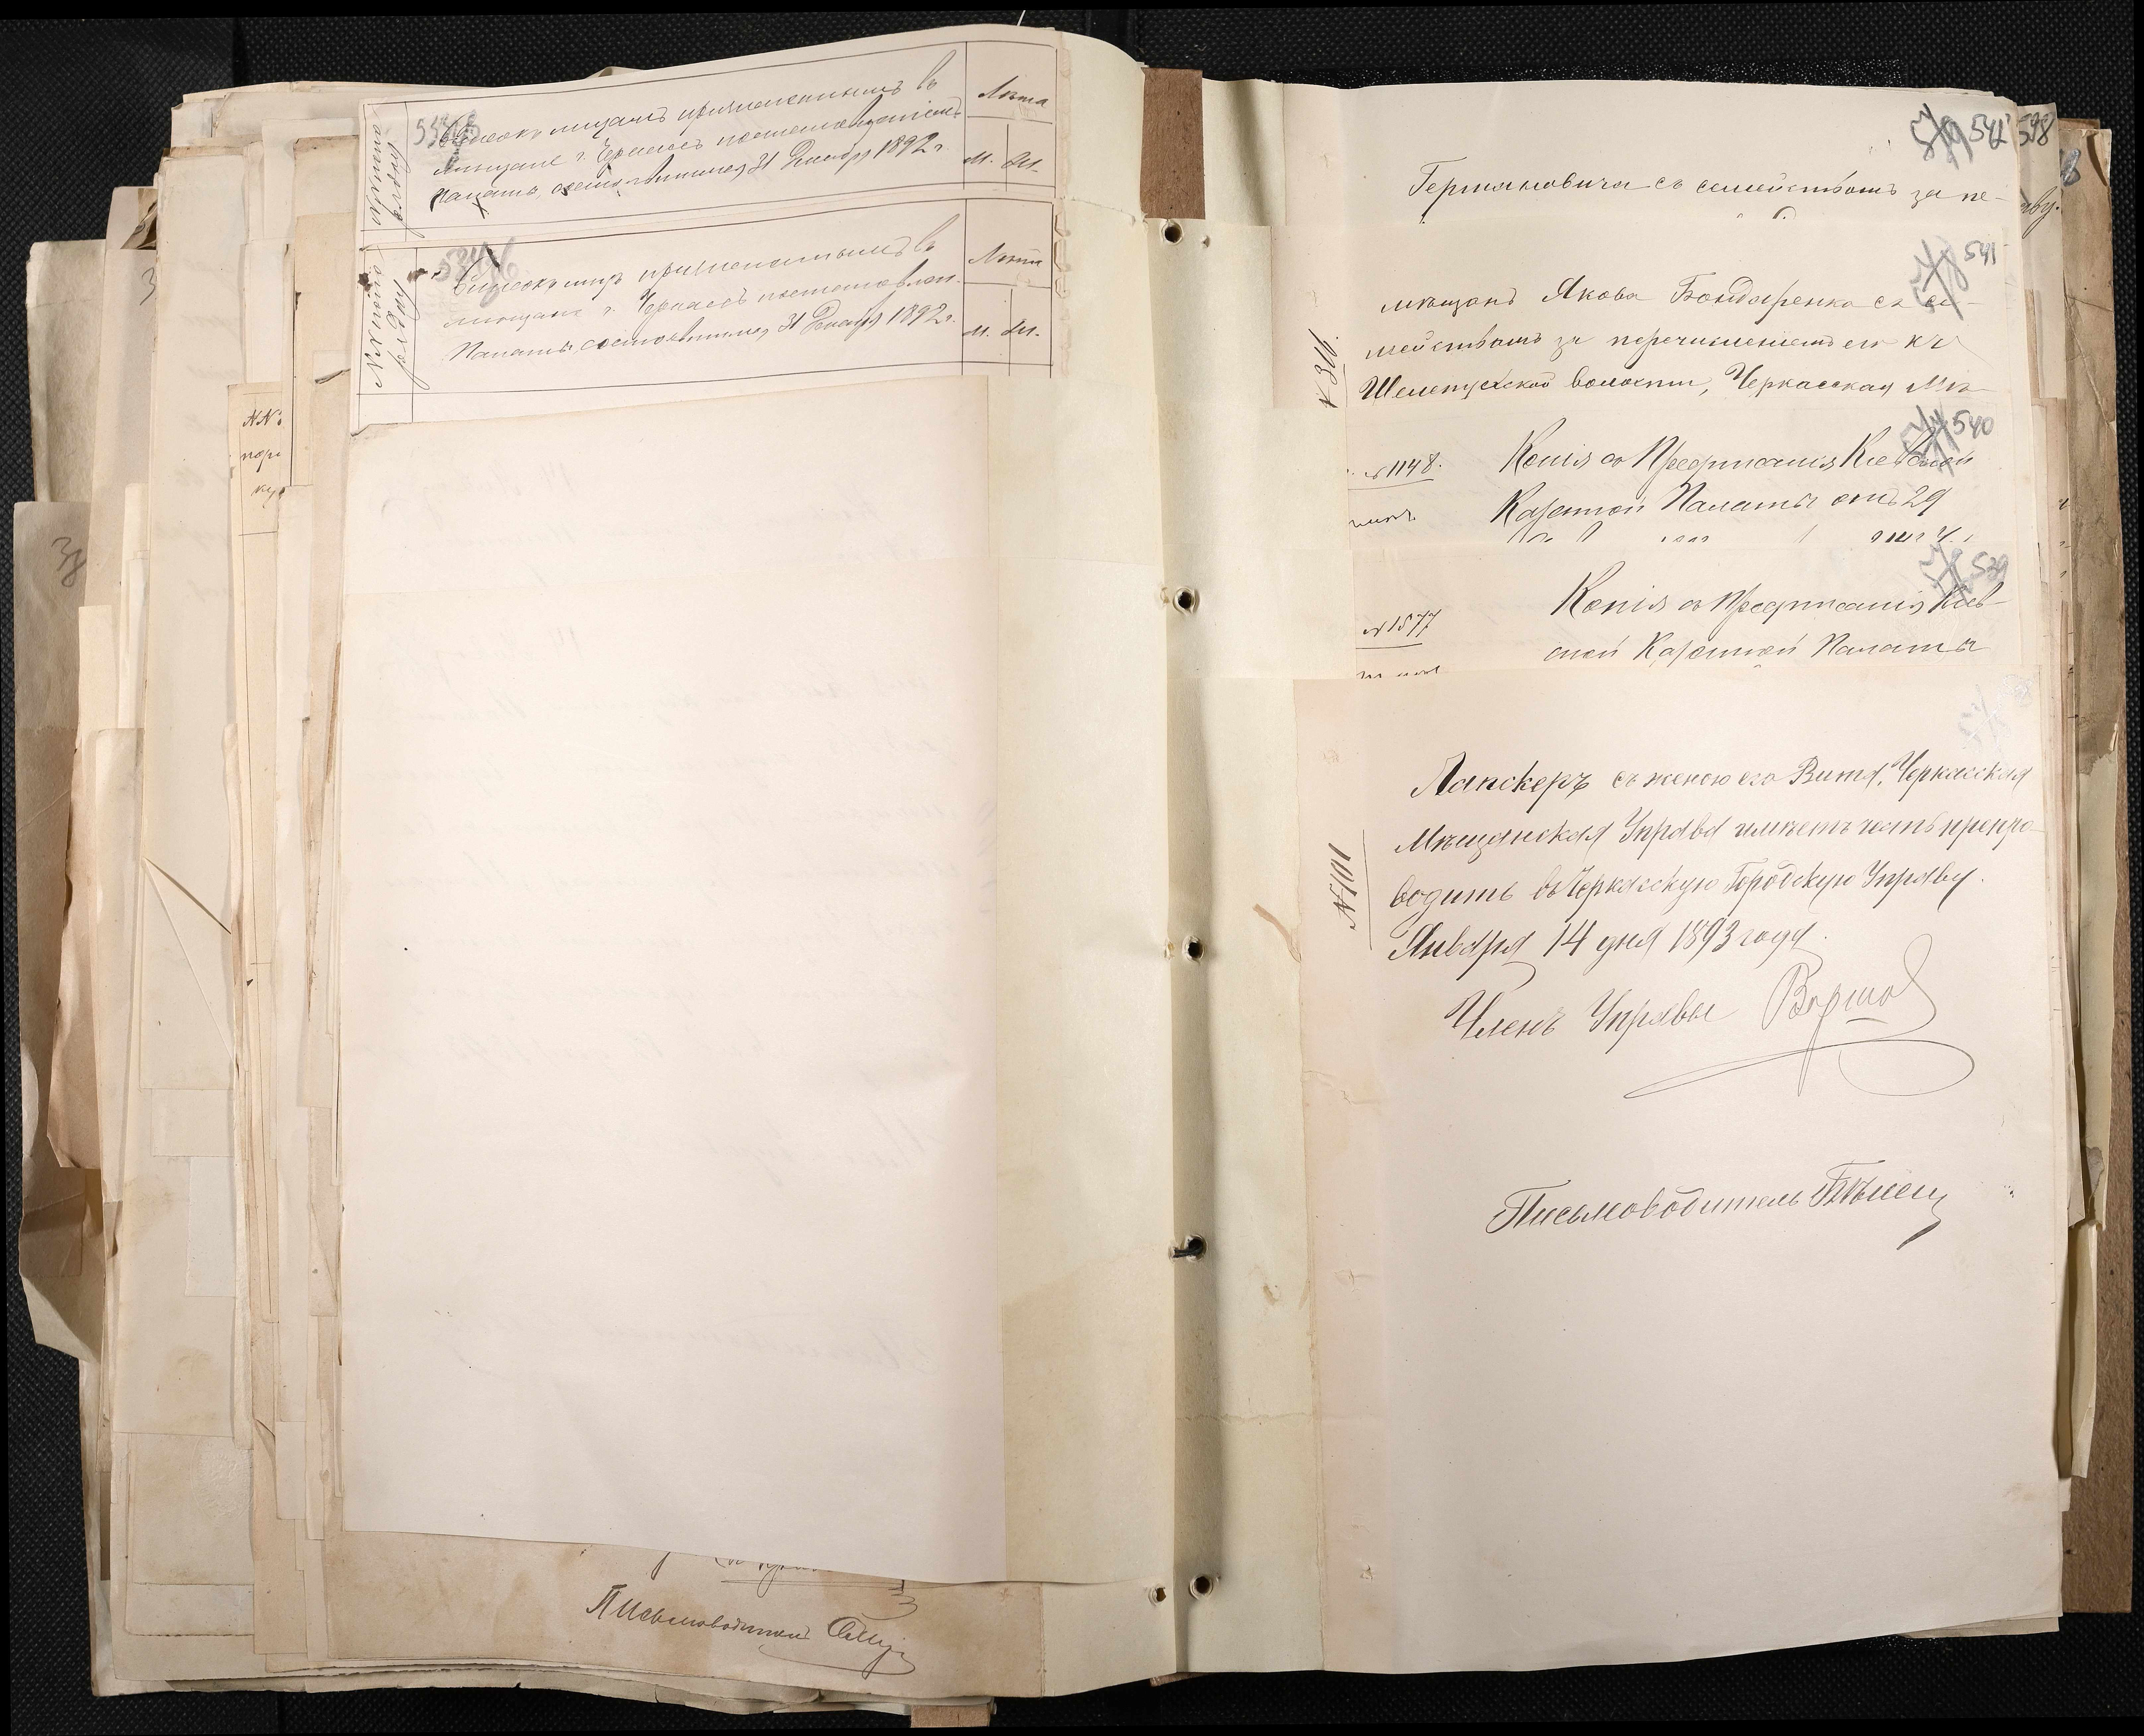 Списокъ мещанъ причисленныхъ въ
мещане г. Черкасъ постановленіемъ
Палаты, состоявшимся 31 Декабря 1892 г.
Лета
М. Ж.
Списокъ лицъ причисленныхъ въ
мещане г. Черкасъ постановлен.
Палаты, состоявшимся 31 Декабря 1892 г.
Лета
М. Ж.
№№
Письмоводитель
542
538
Германовича съ семействомъ за пе-
541
мѣщанъ Якова Бондаренко съ се-
мействомъ за перечисленіемъ его къ
Шелепухской волости, Черкасская Мѣ-
№ 316.
540
№ 1148.
Копія съ Предписанія Кіевской
Казенной Палаты отъ 29
539
№ 1577
Копія съ Предписанія Кіев-
ской Казенной Палаты
Лапскеръ съ женою его Витя, Черкасская
Мѣщанская Управа имѣетъ честь препро-
водить въ Черкасскую Городскую Управу.
Января 14 дня 1893 года.
№ 101
Членъ Управы
Письмоводитель